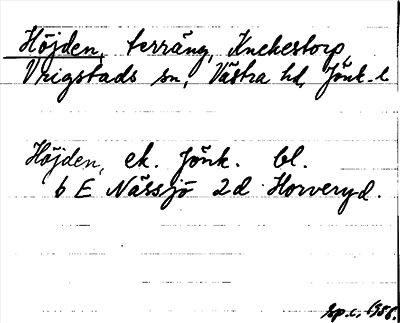 Höjden, terräng, Knekestorp,
Vrigstads sn, Västra hd, Jönk. l
Höjden, ek. Jönk. bl.
6 E Nässjö 2d Horveryd.
sp.c. 1958.